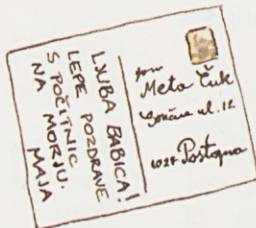 LJUBA BABICA!
LEPE POZDRAVE
S POČITNIC
NA MORJU.
MAJA
Meta Čuk
ul. 12
Postojna